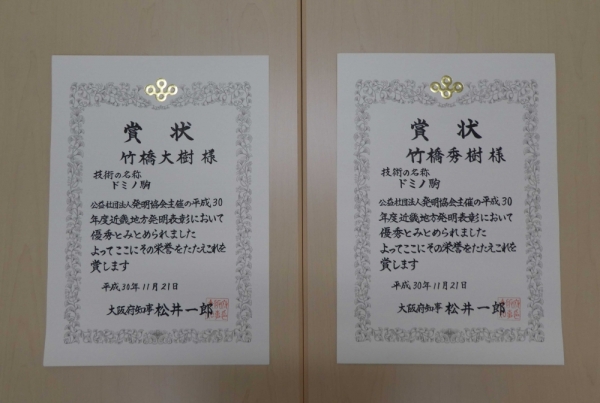 賞状
竹橋大樹 様
技術の名称
ドミノ駒
公益社団法人発明協会主催の平成30
年度近畿地方発明表彰において
優秀とみとめられました
よってここにその栄誉をたたえこれを
賞します
平成30年11月21日
大阪府知事 松井一郎
賞状
竹橋秀樹 様
技術の名称
ドミノ駒
公益社団法人発明協会主催の平成30
年度近畿地方発明表彰において
優秀とみとめられました
よってここにその栄誉をたたえこれを
賞します
平成30年11月21日
大阪府知事 松井一郎